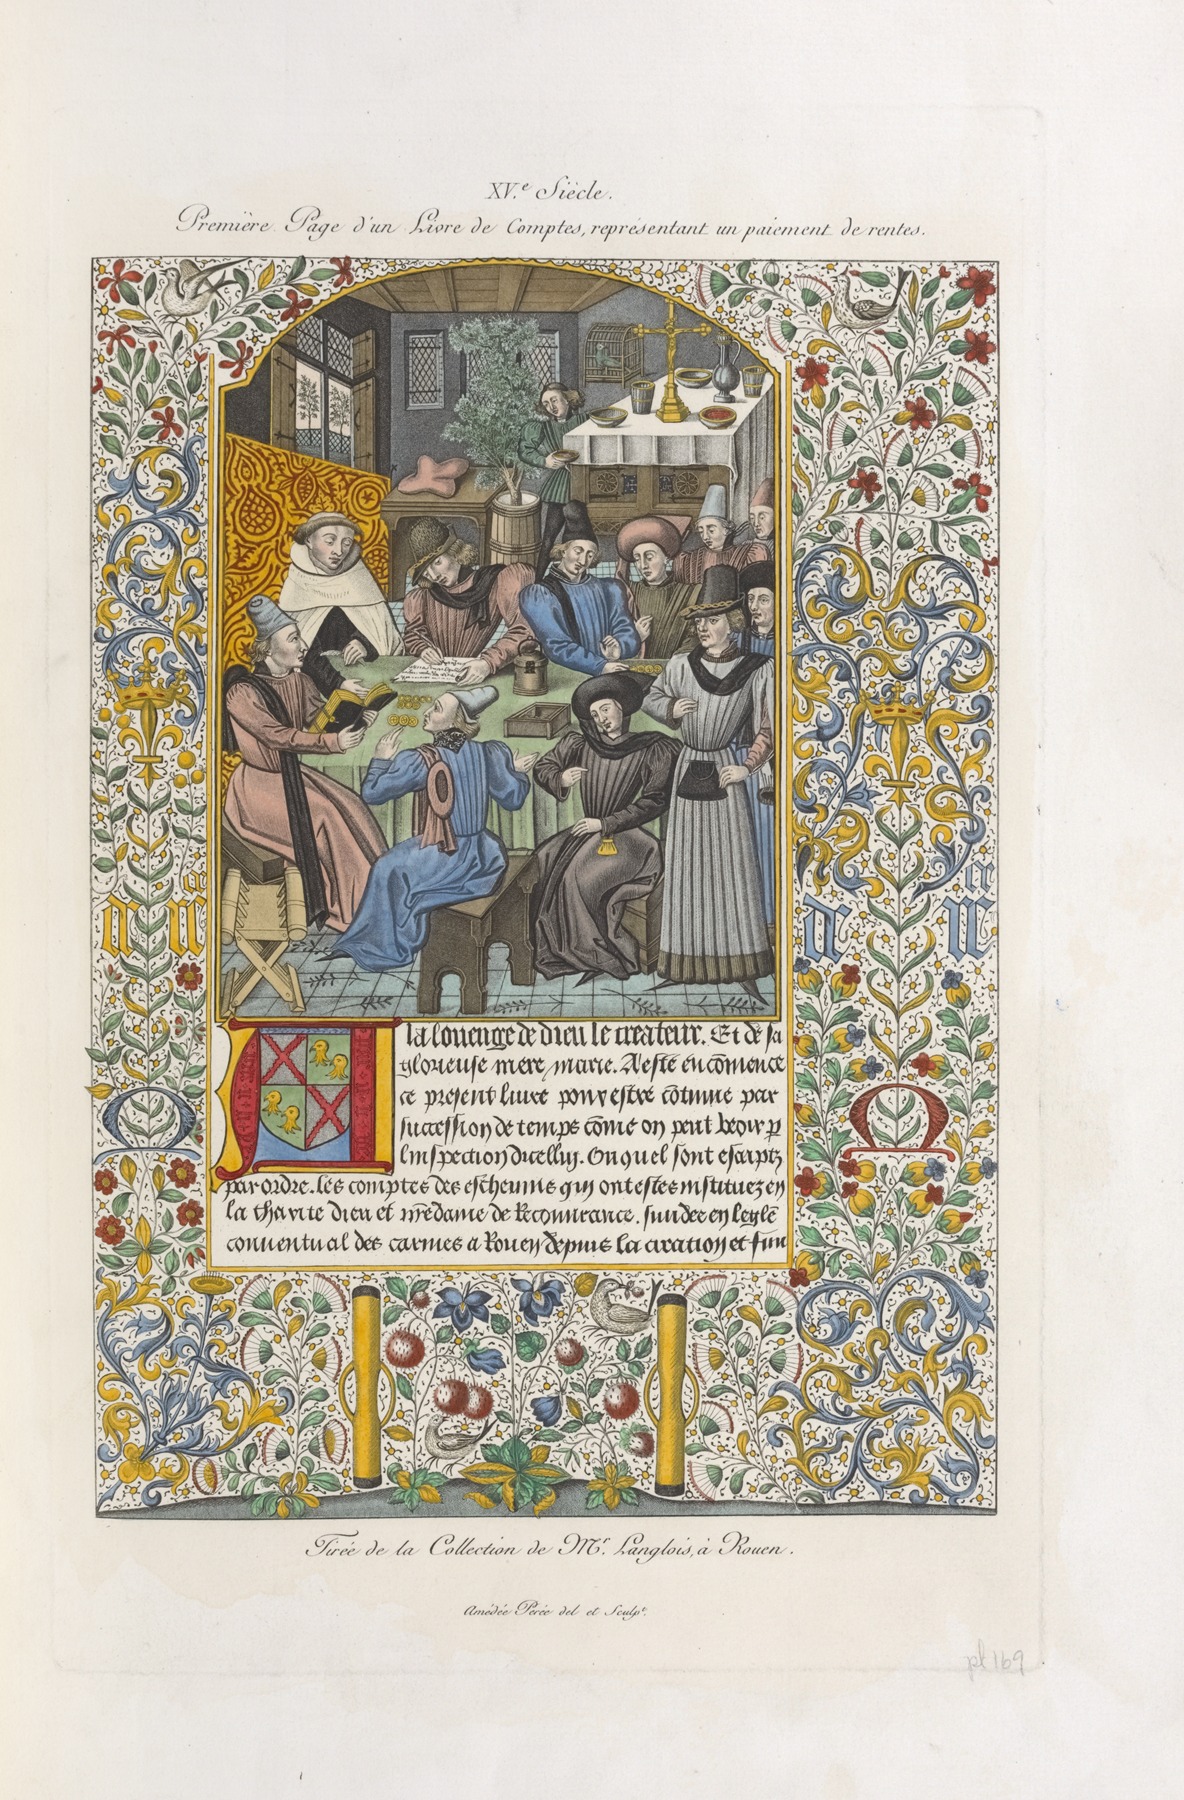 XV.e Siècle.
Première Page d'un Livre de Comptes, représentant un paiement de rentes.
A la louenge de dieu le createur. Et de sa
glorieuse mere marie. A este encōmence
ce present livre pour estre cōtinue par
succession de temps cōme on peut veoir p
linspection dicelluy. Onquel sont escriptz
par ordre. les comptes des eschevins qui ont estes instituez en
la charite dieu et nr̄e dame de Recouvrance. fundee en leglē
conventual des carmes a Rouen depuis la creation et fun
Tirée de la Collection de Mr. Langlois, à Rouen.
Amédée Pérée del et Sculpt.
pl 169